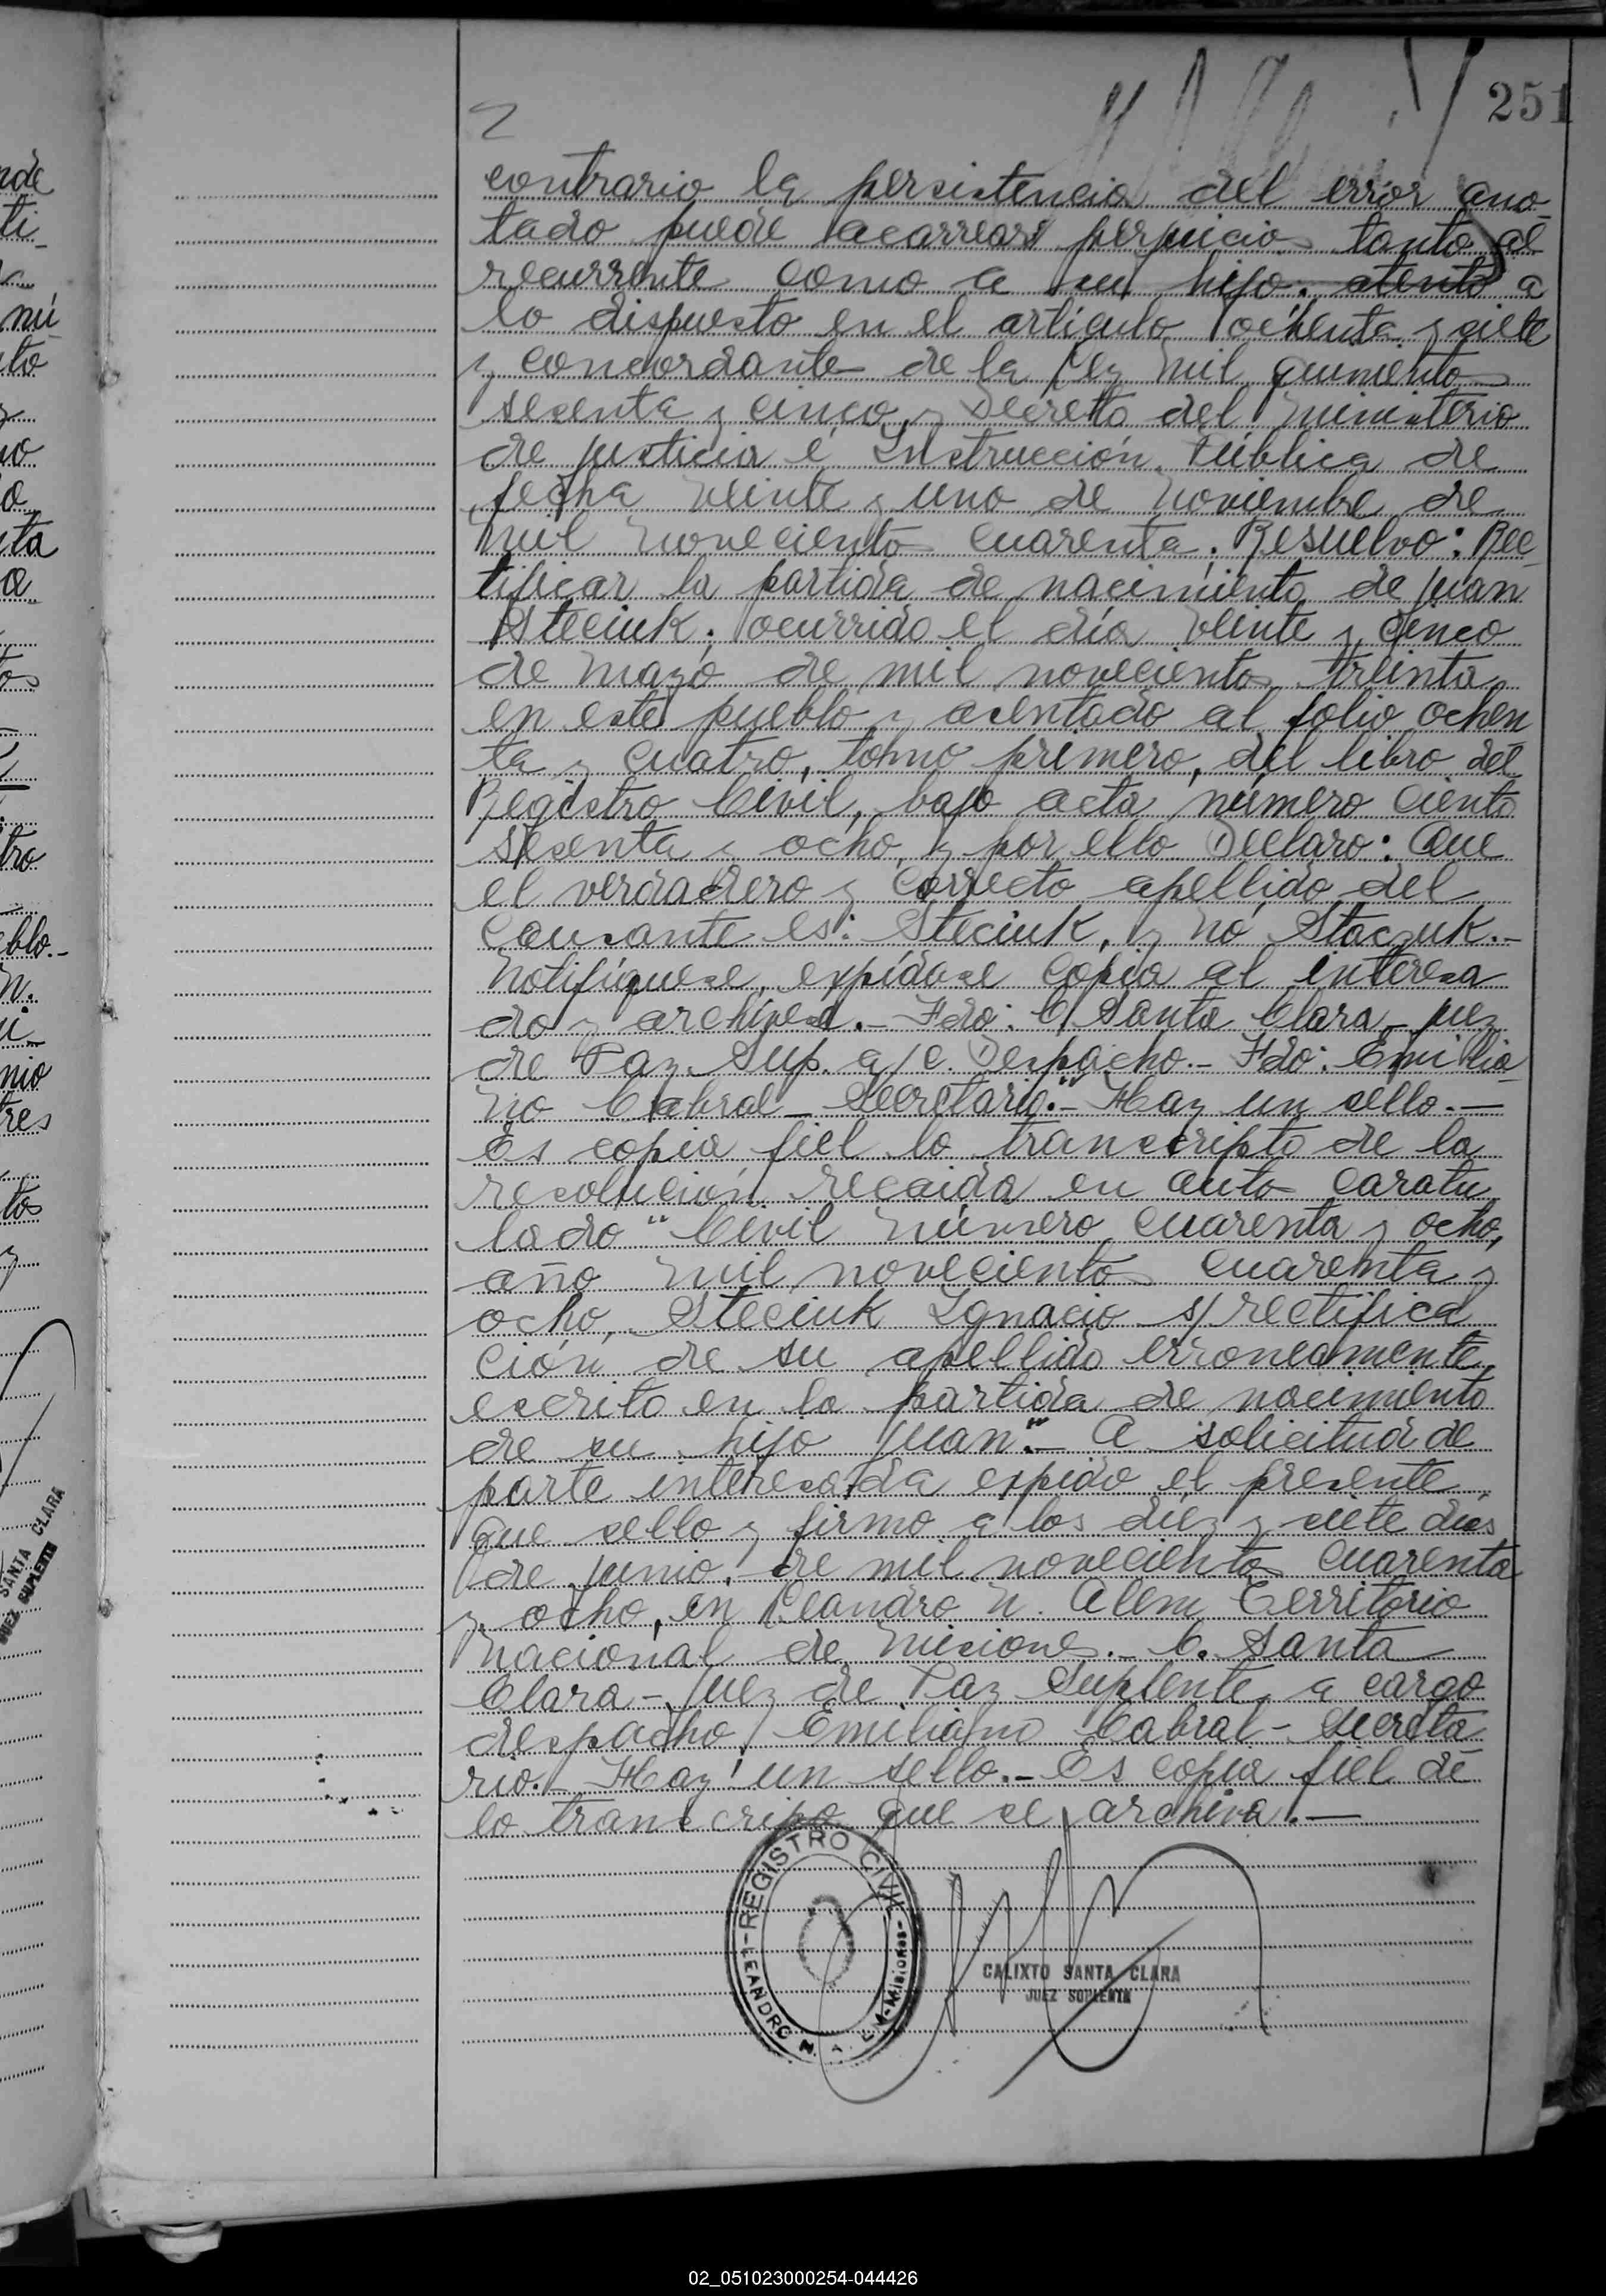 251
contrario la persistencia del error ano-
tado puede acarrear perjuicios tanto al
recurrente como a su hijo. atento a
lo dispuesto en el artículo ochenta y siete
y concordante de la Ley mil quinientos
sesenta y cinco, y Decreto del Ministerio
de justicia é Instrucción Pública de
fecha veinte y uno de Noviembre de
mil novecientos cuarenta. Resuelvo: Rec-
tificar la partida de nacimiento de Juan
Steciuk. ocurrido el día veinte y cinco
de mayo de mil novecientos treinta
en este pueblo y asentado al folio ochen
ta y cuatro, tomo primero, del libro del
Registro Civil, bajo acta número ciento
sesenta y ocho, y por ello Declaro: Que
el verdadero y correcto apellido del
causante es: Steciuk, y nó Staczuk.-
Notifíquese, expídase copia al interesa
do y archívese.- Fdo: C. Santa Clara - juez
de Paz Sup. a/c. Despacho.- Fdo: Emilia-
no Cabral - Secretario."- Hay un sello.-
Es copia fiel lo transcripto de la
resolución recaída en autos caratu
lado "Civil número cuarenta y ocho,
año mil novecientos cuarenta y
ocho, Steciuk Ignacio s/ rectifica
ción de su apellido erroneamente
escrito en la partida de nacimiento
de su hijo Juan."- A solicitud de
parte interesada expido el presente
que sello y firmo a los diéz y siete días
de junio, de mil novecientos cuarenta
y ocho, en Leandro N. Alem Territorio
Nacional de Misiones.- C. Santa
Clara - Juez de Paz Suplente a cargo
despacho, Emiliano Cabral - Secreta
rio.- Hay un sello.- Es copia fiel de
lo transcripo que se archiva.-
REGISTRO CIVIL
LEANDRO N. ALEM-Misiones-
CALIXTO SANTA CLARA
JUEZ SUPLENTE
02_051023000254-044426